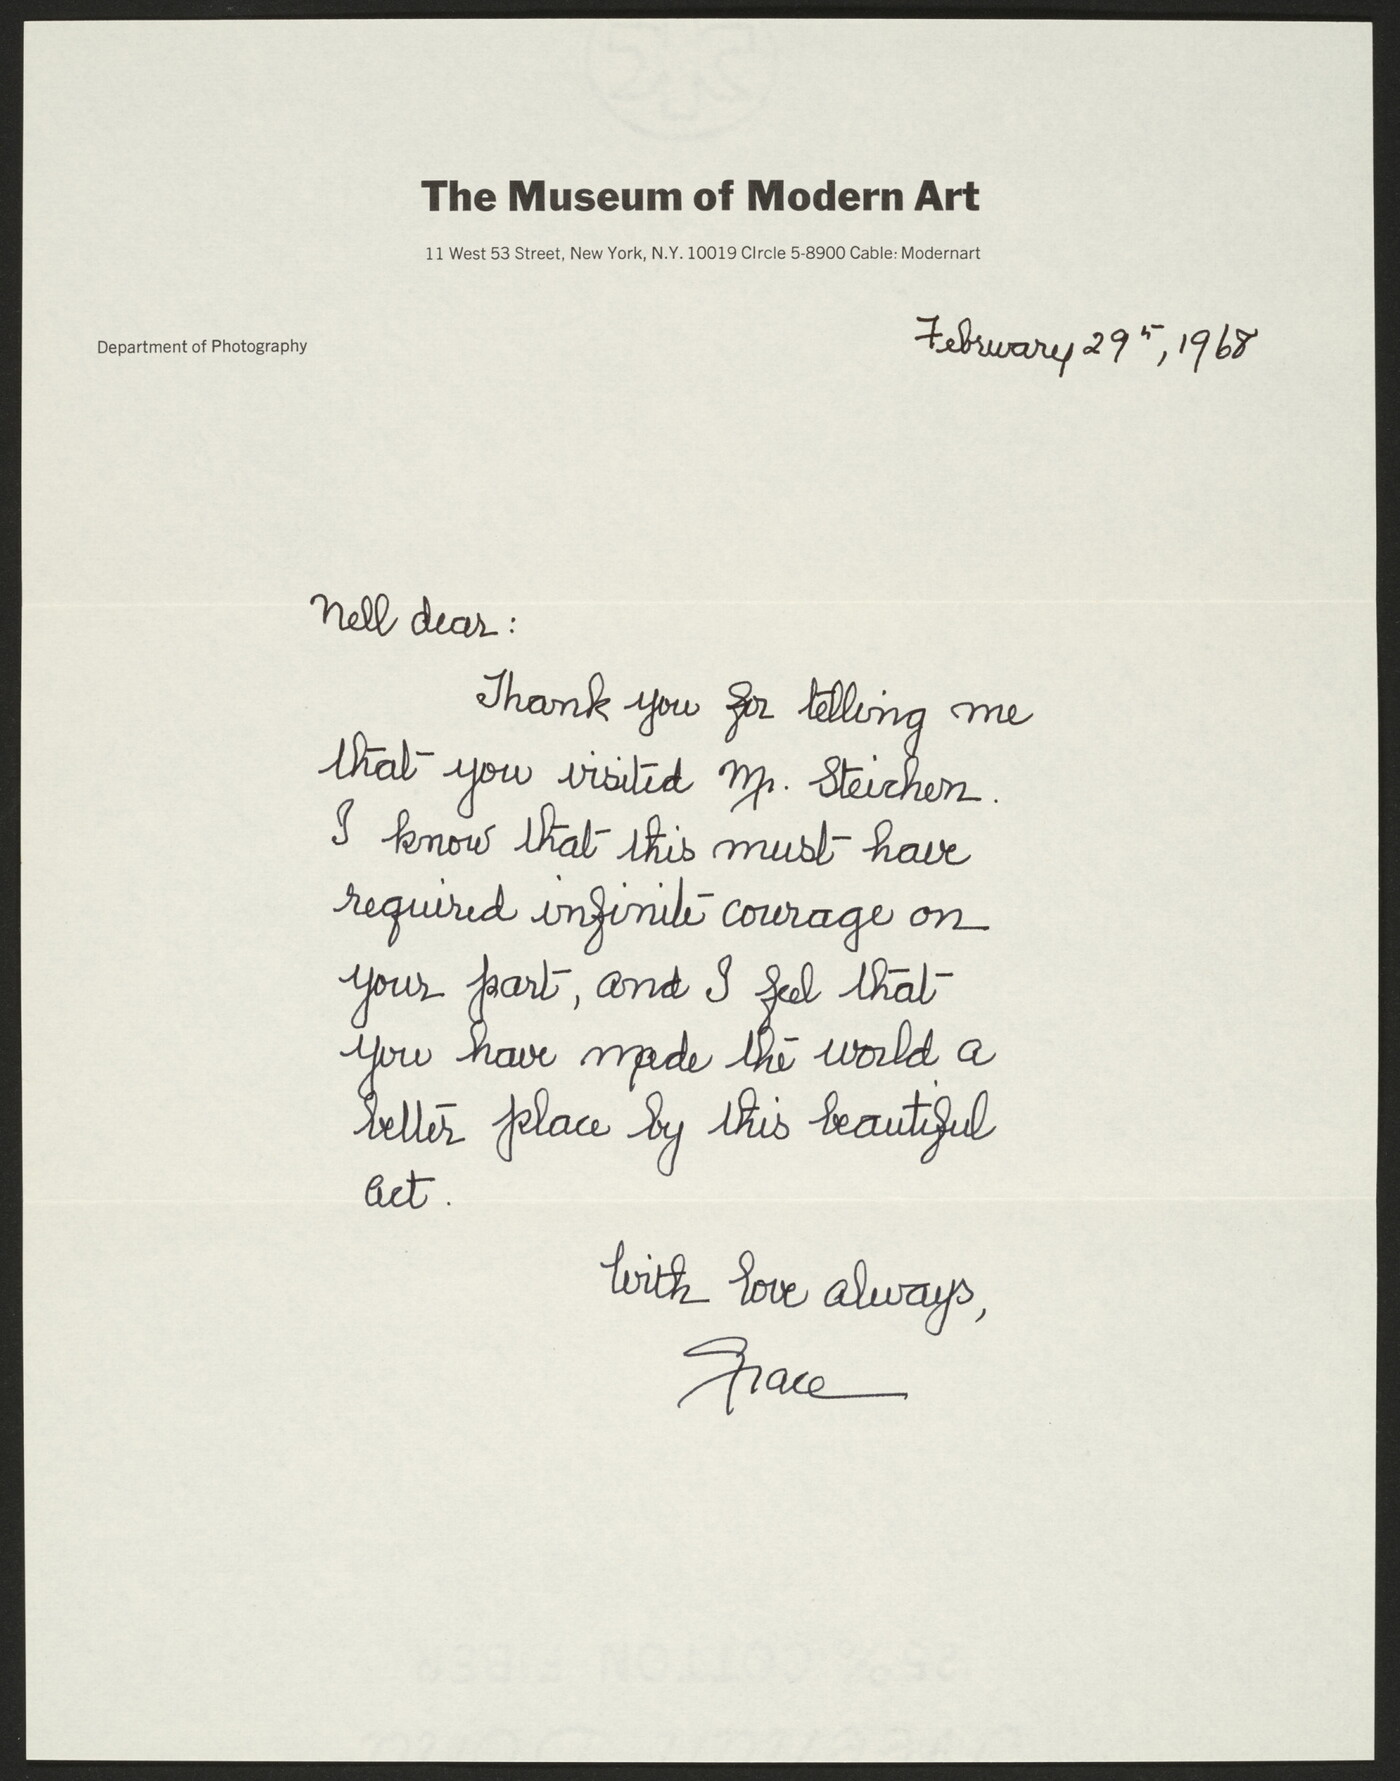 The Museum of Modern Art
11 West 53 Street, New York, N.Y. 10019 CIrcle 5-8900 Cable: Modernart
Department of Photography
February 29th, 1968
Nell dear:
Thank you for telling me
that you visited Mr. Steichen.
I know that this must have
required infinite courage on
your part, and I feel that
you have made the world a
better place by this beautiful
act.
With love always,
Grace